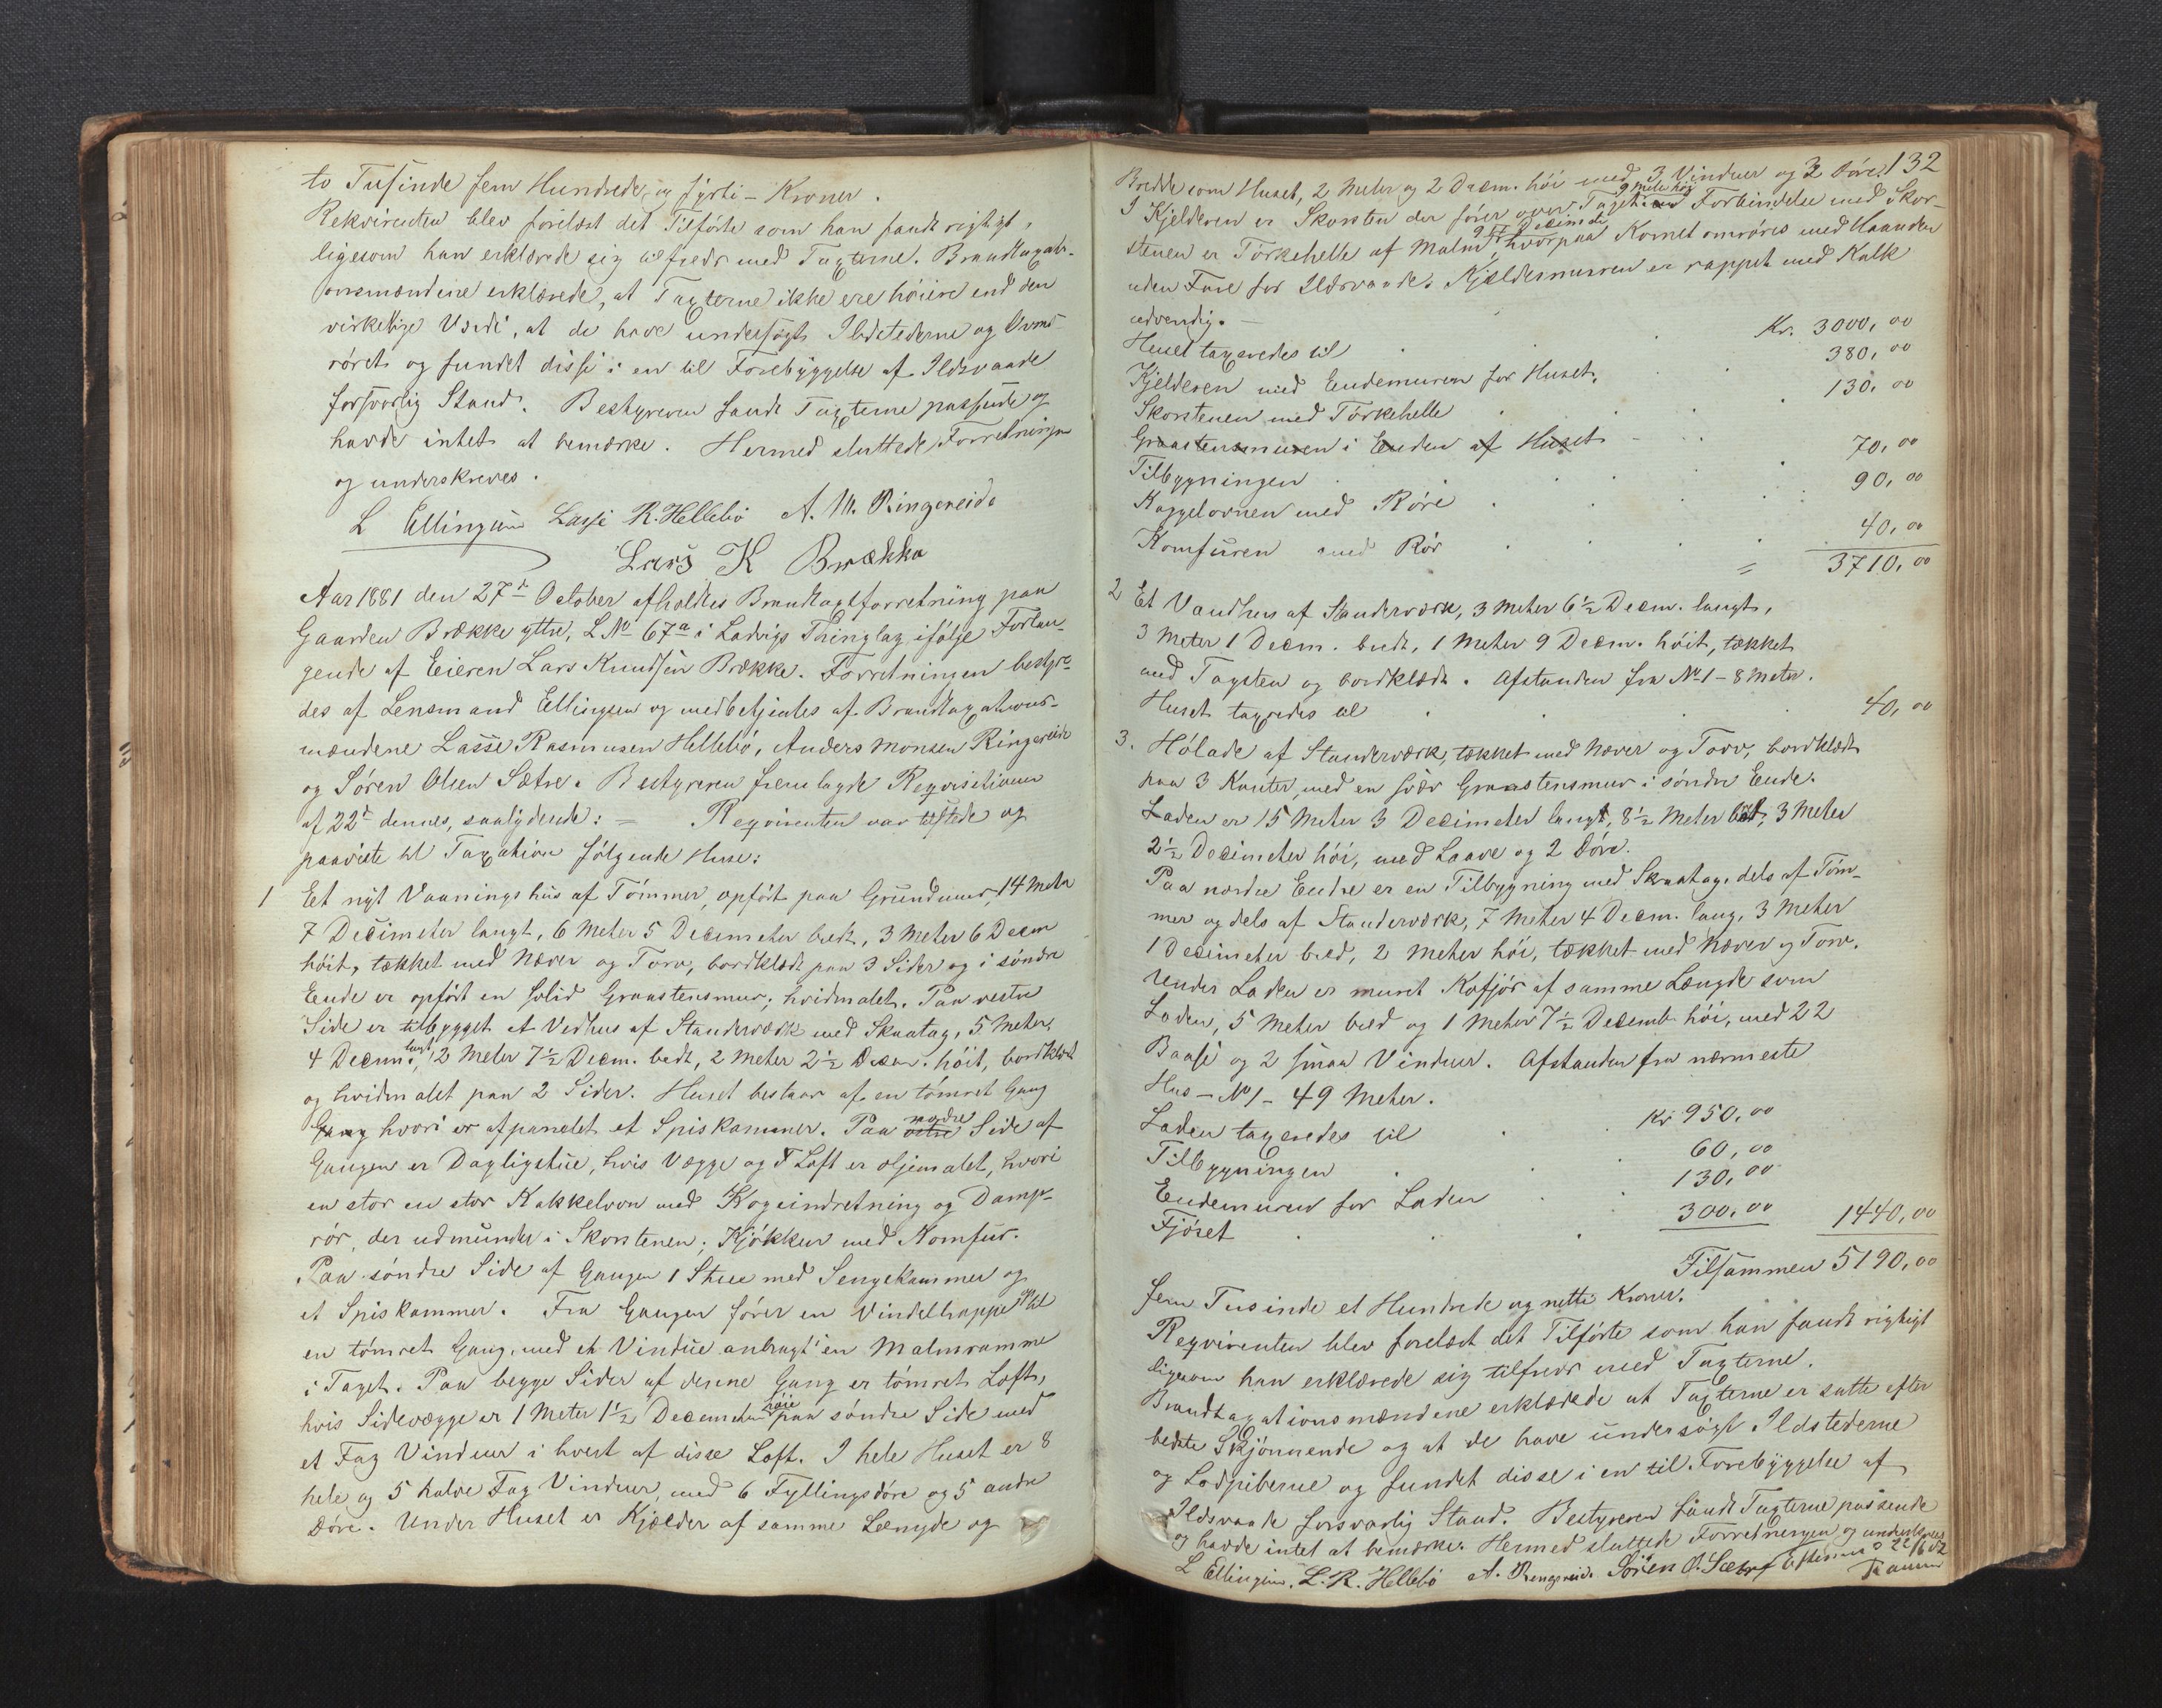 to Tusinde fem Hundrede og fyrti - Kroner.
Rekvirenten blev forelæst det Tilførte som han fandt rigtigt,
ligesom han erklærede sig tilfreds med Taxterne. Brandtaxati-
onsmændene erklærede, at Taxterne ikke ere høiere end den
virkelige Værdi, at de have undersøgt Ildstederne og Ovns-
røret og fundet disse i en til Forebyggelse af Ildsvaade
forsvarlig Stand. Bestyreren fandt Taxterne passende og
havde intet at bemærke. Hermed sluttede Forretningen
og underskreves.
L Ellingsen Lasse R. Hellebø A. M. Ringereide
Lars K Brække
Aar 1881 den 27de October afholdtes Brandtaxtforretning paa
Gaarden Brække yttre, L No 67a i Ladvigs Thinglag ifølge Forlan-
gende af Eieren Lars Knudsen Brække. Forretningen bestyre-
des af Lensmand Ellingsen og medbetjentes af Brandtaxations-
mændene Lasse Rasmusen Hellebø, Anders Monsen Ringereide
og Søren Olsen Sætre. Bestyreren fremlagde Reqvisitionen
af 22de dennes, saalydende: = Reqvirenten var tilstede og
paaviste til Taxation følgende Huse:
1 Et nyt Vaaningshus af Tømmer, opført paa Grundmur, 14 Meter
7 Decimeter langt, 6 Meter 5 Decimeter bredt, 3 Meter 6 Decm
høit, tækket med Næver og Torv, bordklædt paa 3 Sider og i søndre
Ende er opført en solid Graastensmur, hvidmalet. Paa vestre
Side er tilbygget et Vedhus af Standerværk med Skraatag, 5 Meter
4 Decm. langt, 2 Meter 7½ Decm. bredt, 2 Meter 2½ Decm. høit, bordklædt
og hvidmalet paa 2 Sider. Huset bestaar af en tømret Gang
Gang hvori er afpanelet et Spiskammer. Paa østre nordre Side af
Gangen er Dagligstue, hvis Vægge og Loft er oljemalet, hvori
en stor en stor Kakkelovn med Kogeindretning og Damp-
rør, der udmunder i Skorstenen; Kjøkken med Komfur.
Paa søndre Side af Gangen 1 Stue med Sengekammer og
et Spiskammer. Fra Gangen fører en Vindeltrappe op til
en tømret Gang, med et Vindue anbragt i en Malmramme
i Taget. Paa begge Sider af denne Gang er tømret Loft,
hvis Sidevægge er 1 Meter 1½ Decimeter høie paa søndre Side med
et Fag Vinduer i hvert af disse Loft. I hele Huset er 8
hele og 5 halve Fag Vinduer, med 6 Fyllingsdøre og 5 andre
Døre. Under Huset er Kjælder af samme Længde og
132
Bredde som Huset, 2 Meter og 2 Decm. høi med 3 Vinduer og 2 Døre.
I Kjelderen er Skorsten der fører over Taget 9 Meter høi Forbindelse med Skor-
stenen er Tørkehelle af Malm, hvorpaa Kornet omrøres med Haanden
uden Fare for Ildsvaade. Kjældermuren er rappet med Kalk
udvendig. —
Huset taxeredes til Kr. 3000,00
Kjelderen med Endemuren for Huset, 380,00
Skorstenen med Tørkehelle 130,00
Graastensmuren i Enden af Huset
Tilbygningen 70,00
Kaggelovnen med Røre 90,00
Komfuren med Rør 40,00
= 3710,00
2 Et Vandhus af Standerværk, 3 Meter 6½ Decm. langt,
3 Meter 1 Decm. bredt, 1 Meter 9 Decm. høit, tækket
med Tagsten og bordklædt. Afstanden fra No 1 - 8 Meter.
Huset taxredes til 40,00
3. Hølade af Standerværk, tækket med Næver og Torv, bordklædt
paa 3 Kanter, med en svær Graastensmur i søndre Ende.
Laden er 15 Meter 3 Decimeter langt, 8½ Meter bredt, 3 Meter
2½ Decimeter høi, med Laave og 2 Døre.
Paa nordre Endre er en Tilbygning med Skraatag, dels af Tøm-
mer og dels af Standerværk, 7 Meter 4 Decm. lang, 3 Meter
1 Decimeter bred, 2 Meter høi, tækket med Næver og Torv.
Under Laden er muret Kofjøs af samme Længde som
Laden, 5 Meter bred og 1 Meter 7½ Decemt. høi, med 22
Baase og 2 smaa Vinduer. Afstanden fra nærmeste
Hus - No 1 - 49 Meter.
Laden taxeredes til Kr 950,00
Tilbygningen 60,00
Endemuren for Laden 130,00
Fjøset 300,00 1440,00
Tilsammen 5190,00
fem Tusinde et Hundrede og nitti Kroner.
Reqvirenten blev forelæst det Tilførte som han fandt rigtigt
ligesom han erklærede sig tilfreds med Taxterne.
Brandtaxationsmændene erklærede at Taxterne er satte efter
bedste Skjønnende og at de have undersøgt Ildstederne
og Lodpiberne og fundet disse i en til Forebyggelse af
Ildsvaade forsvarlig Stand. Bestyreren fandt Taxterne passende
og havde intet at bemærke. Hermed sluttede Forretningen og underskreves
L Ellingsen. L. R. Hellebø A. Ringereide Søren O. Sætre